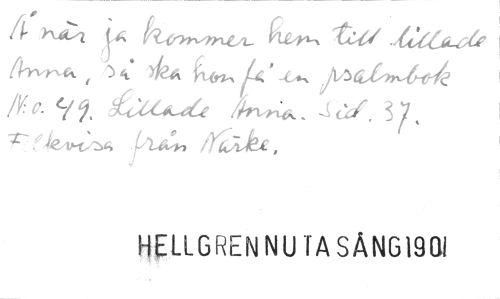 Å när ja kommer hem till lillade
Anna, så ska hon få en psalmbok
N:o. 49. Lillade Anna. Sid. 37.
Folkvisa från Närke.
HELLGREN NUTA SÅNG 1901